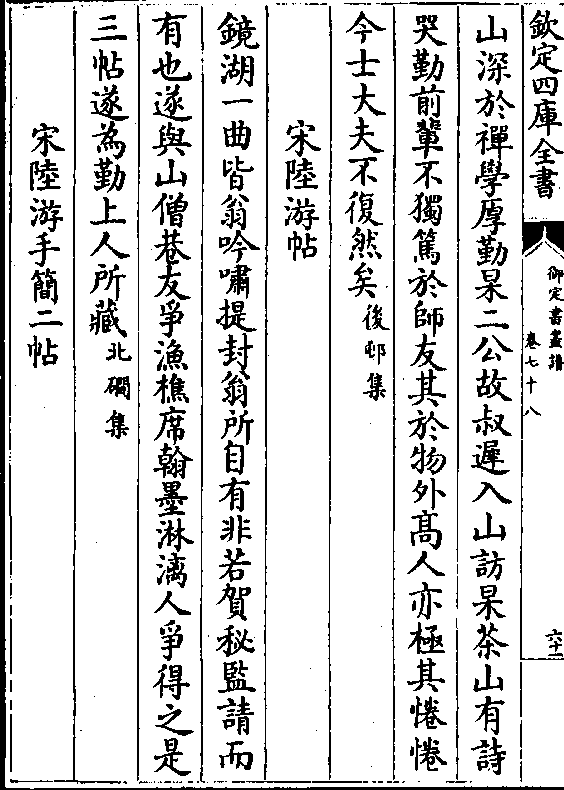 欽定四庫全書
御定書畫譜
卷七十八
六十一
山深於禪學厚勤杲二公故叔遲入山訪杲茶山有詩
哭勤前輩不獨篤於師友其於物外髙人亦極其惓惓
今士大夫不復然矣後邨集
宋陸游帖
鏡湖一曲皆翁吟嘯提封翁所自有非若賀秘監請而
有也遂與山僧巷友爭漁樵席翰墨淋漓人爭得之是
三帖遂為勤上人所藏北磵集
宋陸游手簡二帖